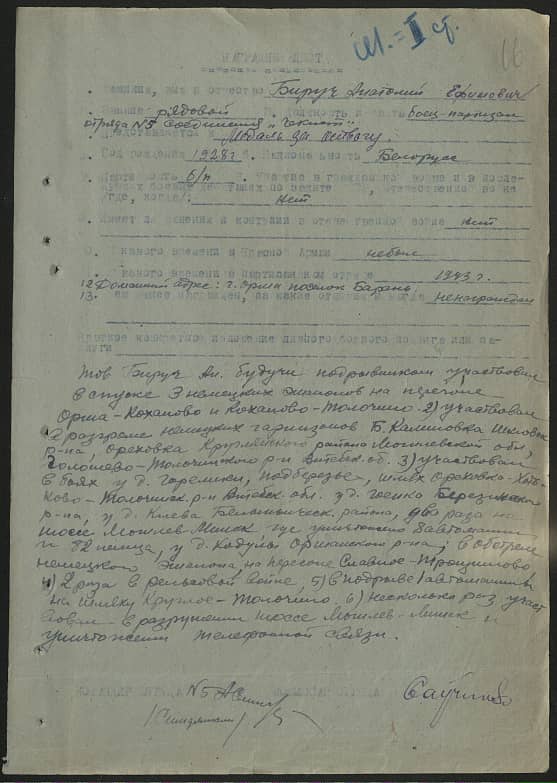 м.=I ст.
66
НАГРАДНОЙ ЛИСТ
. Фамилия, имя и отчество Бируч Анатолий Ефимович
. Звание рядовой Должность и часть боец-партизан
отряда №5 соединения "
Представляется к Медаль за отвагу
. Год рождения 1928 г . Национальность Белорус
. Партийность б/п . Участие в гражданской войне и в после-
дующих боевых действиях по защите , отечественной во не
где, когда/: нет
. Имеет ли ранения и контузии в отечественной войне нет
0. С какого времени в Красной Армии небыл
С какого времени в партизанском отряде 1943 г.
12 Домашний адрес: г. Орша поселок Барань.
13. ранее награжден, за какие отличия и когда ненагражден
Краткое конкретное изложение личного боевого подвига или за-
слуги
Тов Бируч Ан. будучи подрывником участвовал
в спуске 3 немецких эшелонов на перегоне
Орша-Коханово и Коханово-Толочино. 2) участвовал
в разгроме немецких гарнизонов Б. Калиновка Шкловск
р-на, Ореховка Круглянского района Могилевской обл,
Голошево-Толочинского р-н Витебск. об. 3) участвовал
в боях у д. Горелики, Подберезье, шлях Ореховка-
ково-Толочинск. р-н Витебск. обл. у д. Березинского
р-на, у д. Клева Белыничск. района, два раза на
шоссе Могилев-Минск где уничтожено автомашин
и немца, у д. Кодулы Оршанского р-на; в обстреле
немецкого эшелона, на перегоне Славное-Трощилово
4) 2 раза в рельсовой войне, 5) в подрыве 1 автомашины
на шляху Круглое-Толочино. 6) несколько раз участ
вовал в разрушении шоссе Могилев-Минск и
уничтожении телефонной связи.
КОМАНДИР ОТРЯДА №5 КОМИССАР ОТРЯДА